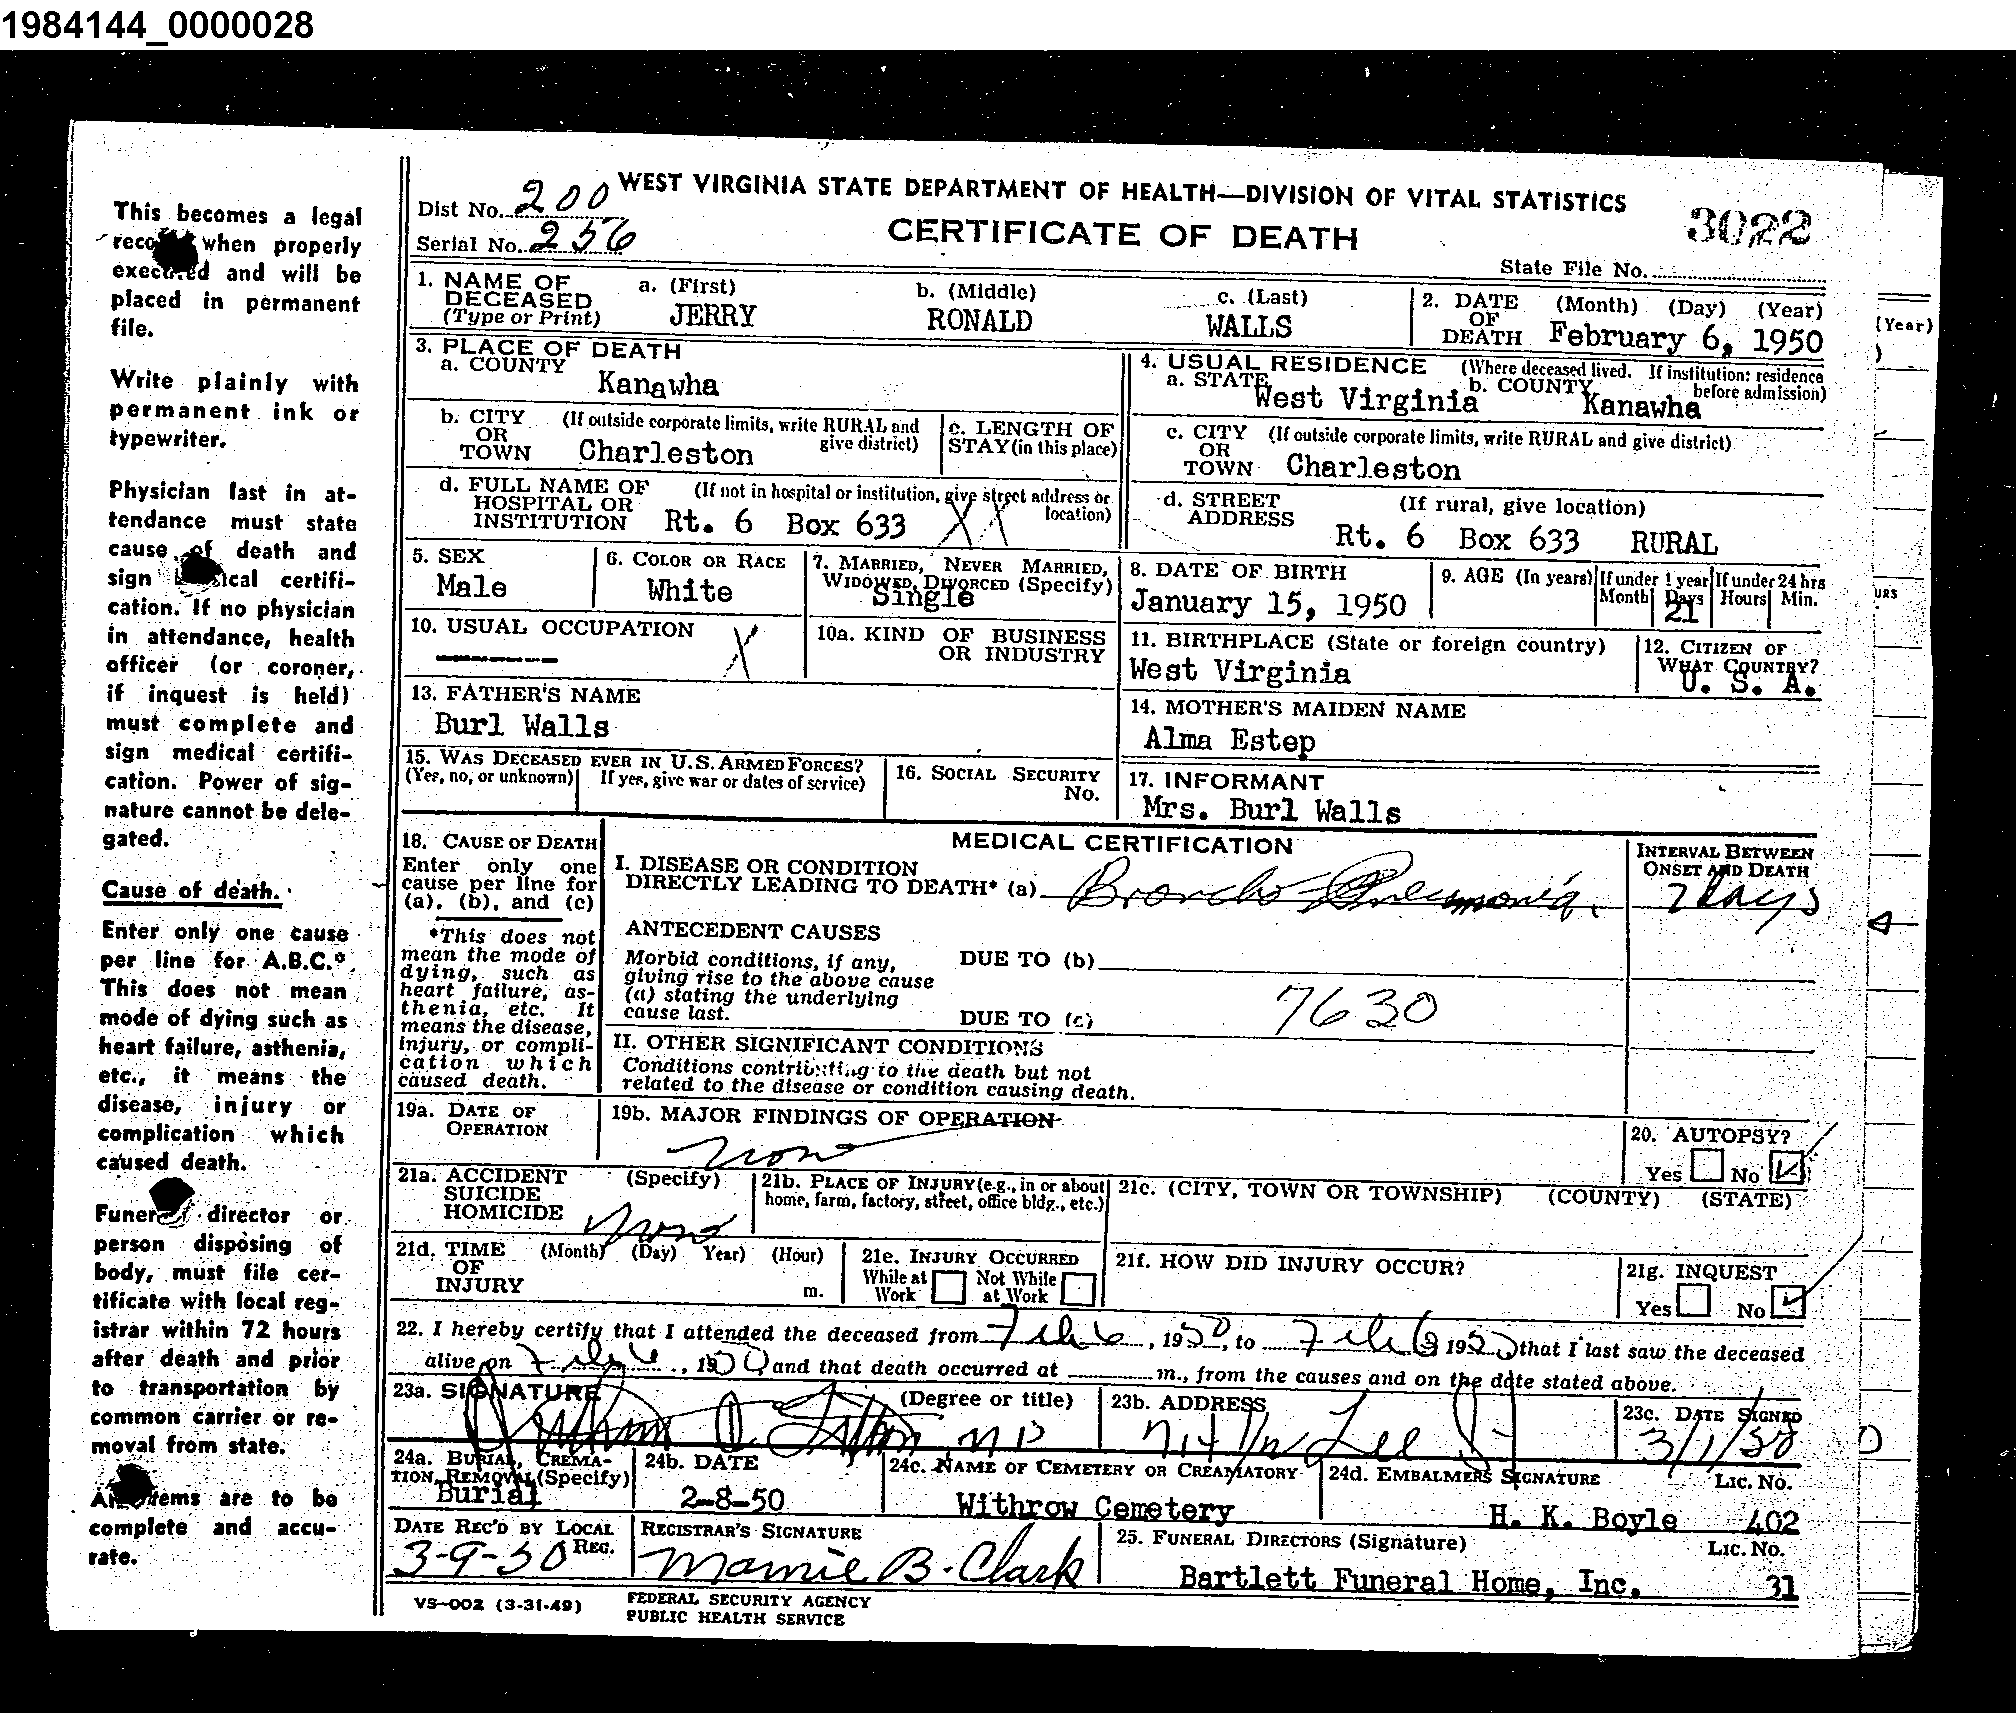 1984144_0000028
This becomes a legal
record when properly
executed and will be
placed in permanent
file.
Write plainly with
permanent ink or
typewriter.
Physician last in at-
tendance must state
cause of death and
sign medical certifi-
cation. If no physician
in attendance, health
officer (or coroner,
if inquest is held)
must complete and
sign medical certifi-
cation. Power of sig-
nature cannot be dele-
gated.
Cause of death.
Enter only one cause
per line for A.B.C.*
This does not mean
mode of dying such as
heart failure, asthenia,
etc., it means the
disease, injury or
complication which
caused death.
Funeral director or
person disposing of
body, must file cer-
tificate with local reg-
istrar within 72 hours
after death and prior
to transportation by
common carrier or re-
moval from state.
All items are to be
complete and accu-
rate.
WEST VIRGINIA STATE DEPARTMENT OF HEALTH—DIVISION OF VITAL STATISTICS
Dist No. 200
CERTIFICATE OF DEATH
3022
Serial No. 256
State File No.
1. NAME OF DECEASED (Type or Print)
a. (First) JERRY
b. (Middle) RONALD
c. (Last) WALLS
2. DATE OF DEATH (Month) (Day) (Year)
February 6, 1950
(Year)
3. PLACE OF DEATH
a. COUNTY Kanawha
4. USUAL RESIDENCE (Where deceased lived. If institution: residence before admission)
a. STATE West Virginia b. COUNTY Kanawha
b. CITY OR TOWN (If outside corporate limits, write RURAL and give district) Charleston
c. LENGTH OF STAY (in this place)
c. CITY OR TOWN (If outside corporate limits, write RURAL and give district) Charleston
d. FULL NAME OF HOSPITAL OR INSTITUTION (If not in hospital or institution, give street address or location)
Rt. 6 Box 633 X X
d. STREET ADDRESS (If rural, give location)
Rt. 6 Box 633 RURAL
5. SEX Male
6. COLOR OR RACE White
7. MARRIED, NEVER MARRIED, WIDOWED, DIVORCED (Specify) Single
8. DATE OF BIRTH January 15, 1950
9. AGE (In years) If under 1 year Month Days 21 If under 24 hrs Hours Min.
URS
10. USUAL OCCUPATION ------ X
10a. KIND OF BUSINESS OR INDUSTRY
11. BIRTHPLACE (State or foreign country) West Virginia
12. CITIZEN OF WHAT COUNTRY? U. S. A.
13. FATHER'S NAME
Burl Walls
14. MOTHER'S MAIDEN NAME
Alma Estep
15. WAS DECEASED EVER IN U.S. ARMED FORCES?
(Yes, no, or unknown) If yes, give war or dates of service)
16. SOCIAL SECURITY No.
17. INFORMANT
Mrs. Burl Walls
18. CAUSE OF DEATH
Enter only one
cause per line for
(a), (b), and (c)
*This does not
mean the mode of
dying, such as
heart failure, as-
thenia, etc. It
means the disease,
injury, or compli-
cation which
caused death.
MEDICAL CERTIFICATION
I. DISEASE OR CONDITION
DIRECTLY LEADING TO DEATH* (a) Broncho-Pneumonia.
INTERVAL BETWEEN ONSET AND DEATH
7 days
ANTECEDENT CAUSES
Morbid conditions, if any,
giving rise to the above cause
(a) stating the underlying
cause last.
DUE TO (b)
7630
DUE TO (c)
II. OTHER SIGNIFICANT CONDITIONS
Conditions contributing to the death but not
related to the disease or condition causing death.
19a. DATE OF OPERATION
19b. MAJOR FINDINGS OF OPERATION
20. AUTOPSY?
Yes No ✓
21a. ACCIDENT SUICIDE HOMICIDE (Specify)
21b. PLACE OF INJURY (e.g., in or about
home, farm, factory, street, office bldg., etc.)
21c. (CITY, TOWN OR TOWNSHIP) (COUNTY) (STATE)
21d. TIME OF INJURY (Month) (Day) Year) (Hour) m.
21e. INJURY OCCURRED
While at Work Not While at Work
21f. HOW DID INJURY OCCUR?
21g. INQUEST
Yes No ✓
22. I hereby certify that I attended the deceased from Feb 6, 1950, to Feb 6 1950 that I last saw the deceased
alive on Feb 6, 1950, and that death occurred at m., from the causes and on the date stated above.
23a. SIGNATURE (Degree or title)
MD
23b. ADDRESS
Lee St
23c. DATE SIGNED
3/1/50
24a. BURIAL, CREMA-
TION, REMOVAL (Specify)
Burial
24b. DATE
2-8-50
24c. NAME OF CEMETERY OR CREAMATORY
Withrow Cemetery
24d. EMBALMERS SIGNATURE Lic. No.
H. K. Boyle 402
DATE REC'D BY LOCAL REG.
3-9-50
REGISTRAR'S SIGNATURE
Mamie B. Clark
25. FUNERAL DIRECTORS (Signature) Lic. No.
Bartlett Funeral Home, Inc. 31
VS-002 (3-31-49)
FEDERAL SECURITY AGENCY
PUBLIC HEALTH SERVICE